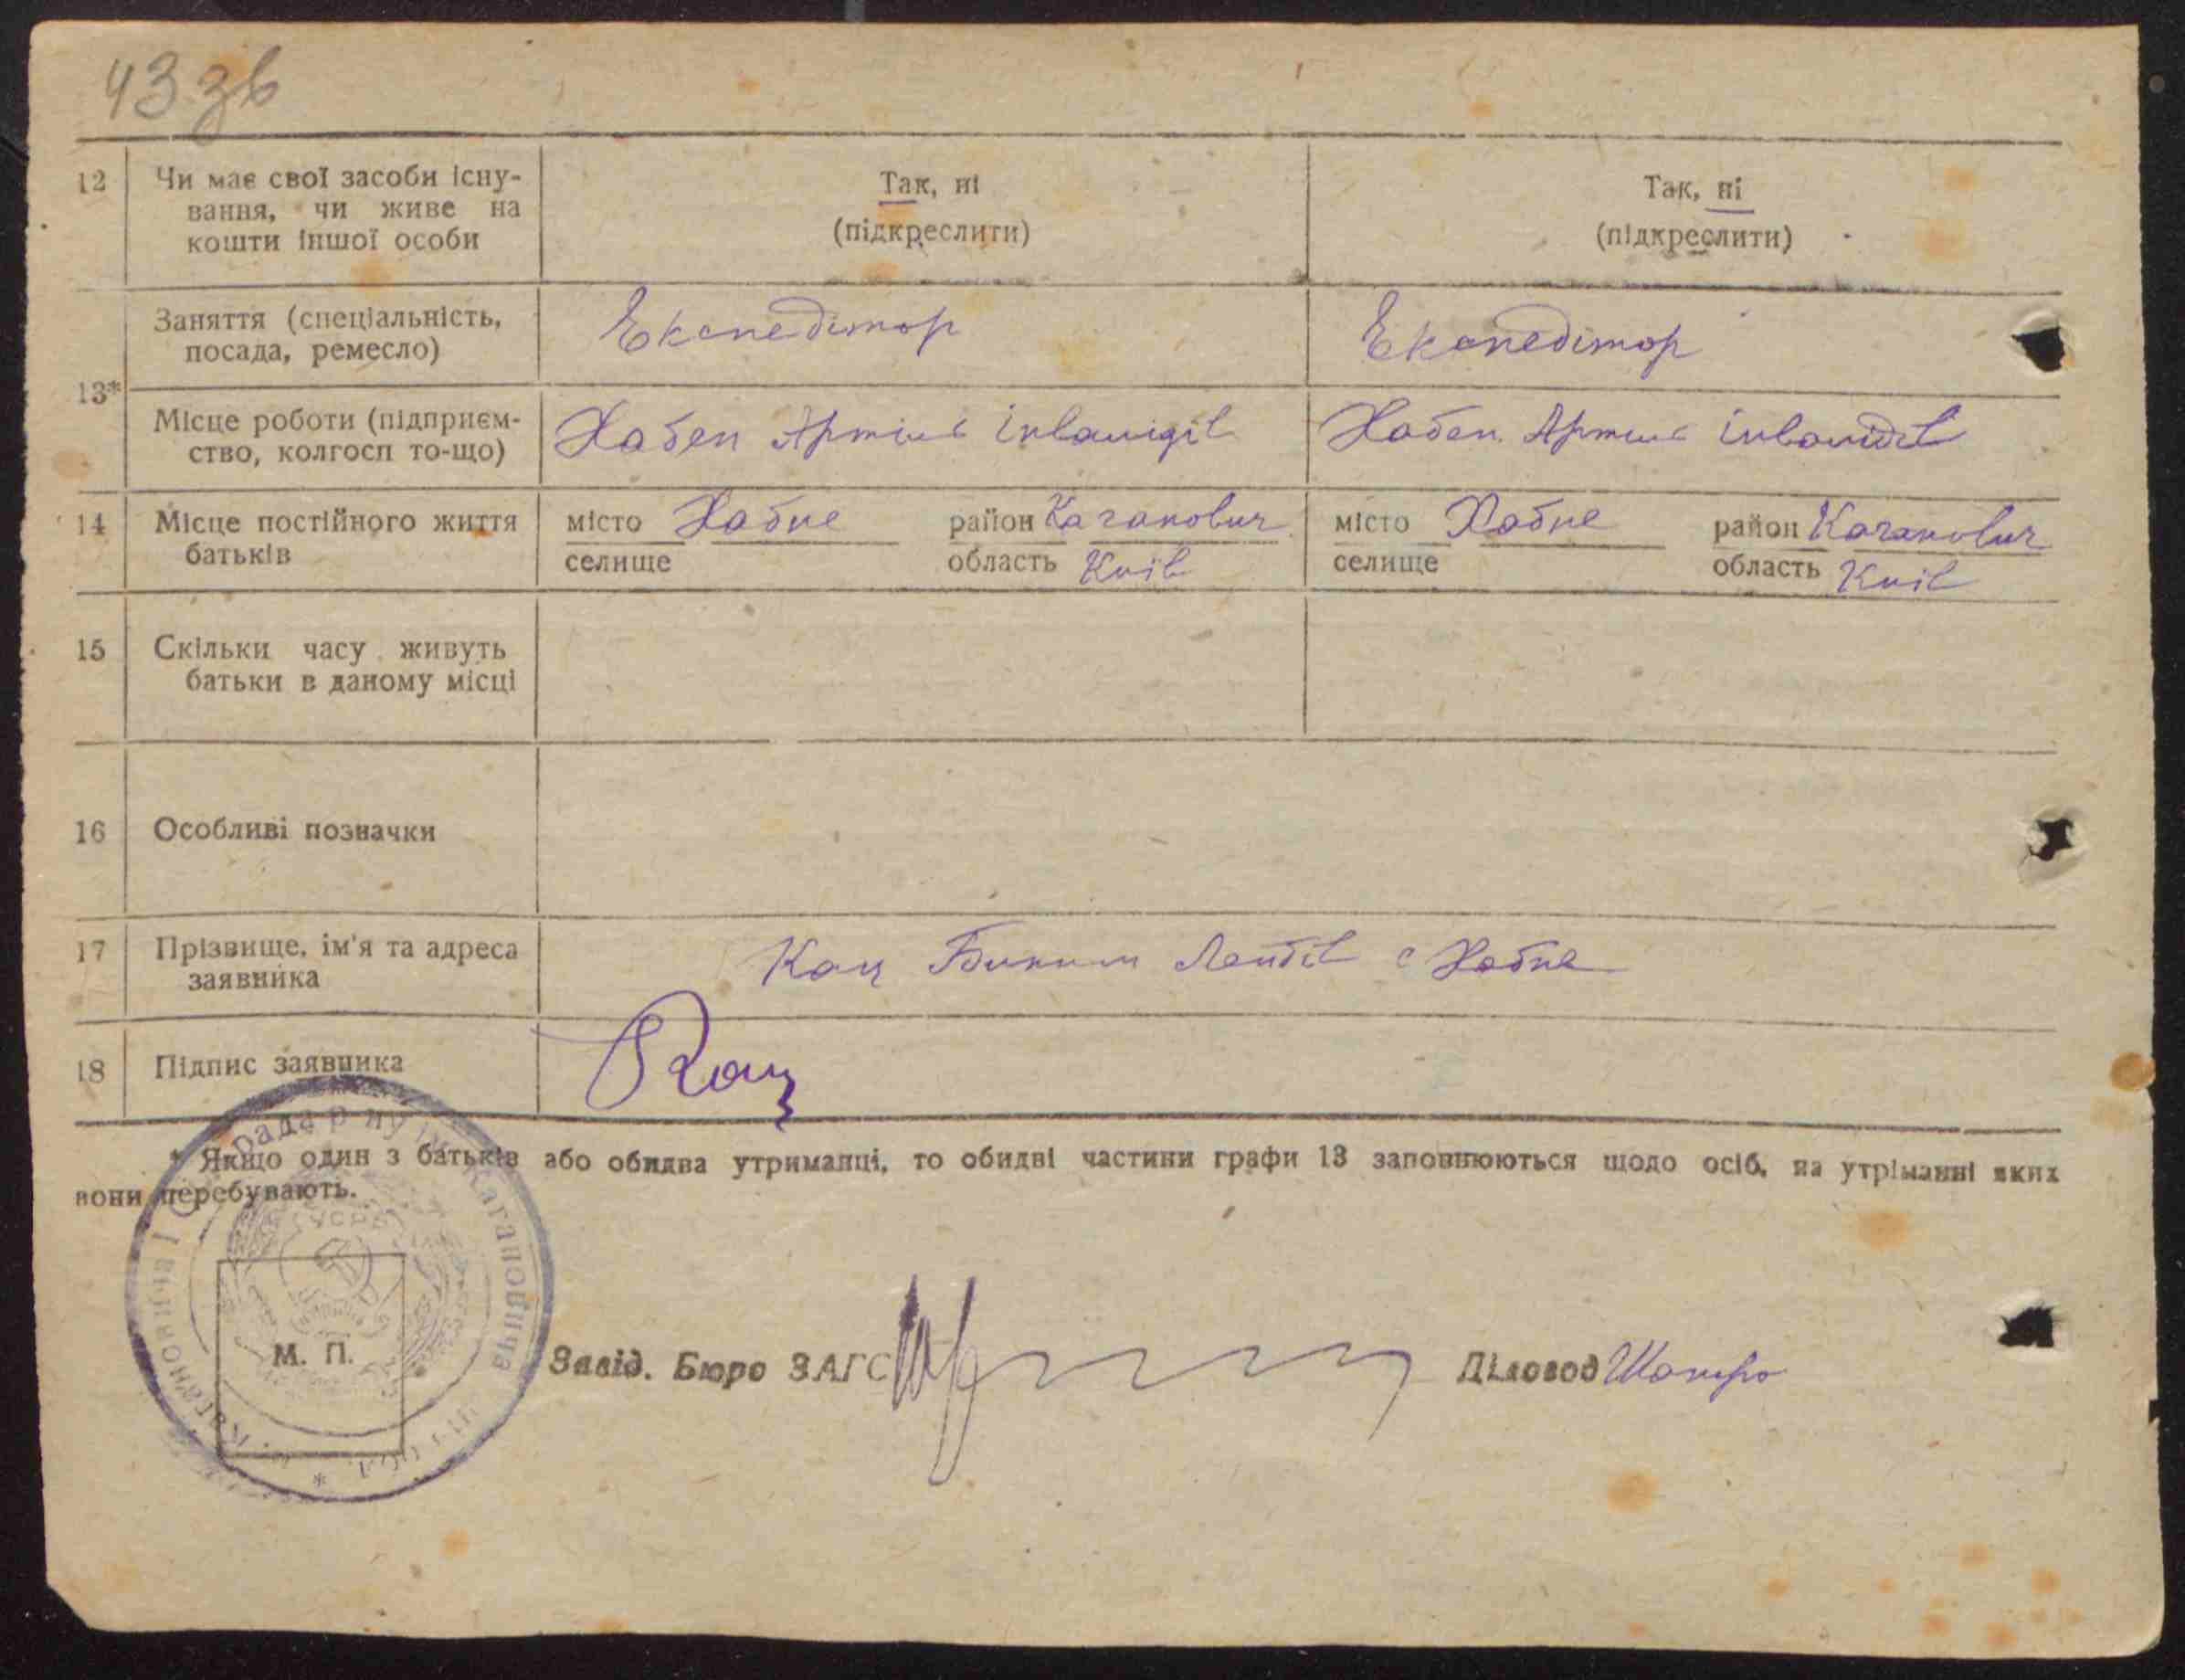 43 зв
12 Чи має свої засоби існу-
вання, чи живе на
кошти іншої особи
Так, ні
(підкреслити)
Так, ні
(підкреслити)
13*
Заняття (спеціальність,
посада, ремесло)
Експедітор
Експедітор
Місце роботи (підприєм-
ство, колгосп то-що)
Хабен Артиль інвалидів
Хабен Артиль інвалидів
14 Місце постійного життя
батьків
місто Хабне район Каганович
селище область Київ
місто Хабне район Каганович
селище область Київ
15 Скільки часу живуть
батьки в даному місці
16 Особливі позначки
17 Прізвище, ім'я та адреса
заявника
Кац Лейбів с Хабне
18 Підпис заявника
Кац
* Якщо один з батьків або обидва утриманці, то обидві частини графи 13 заповнюються щодо осіб, на утріманні яких
вони перебувають.
УСРР
М. П.
Завід. Бюро ЗАГС
Діловод Шапиро